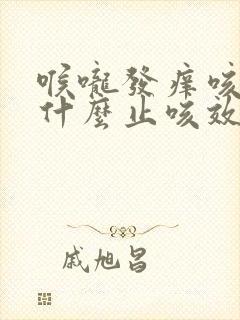 喉嚨發癢咳
什麼止咳效
戚旭昌